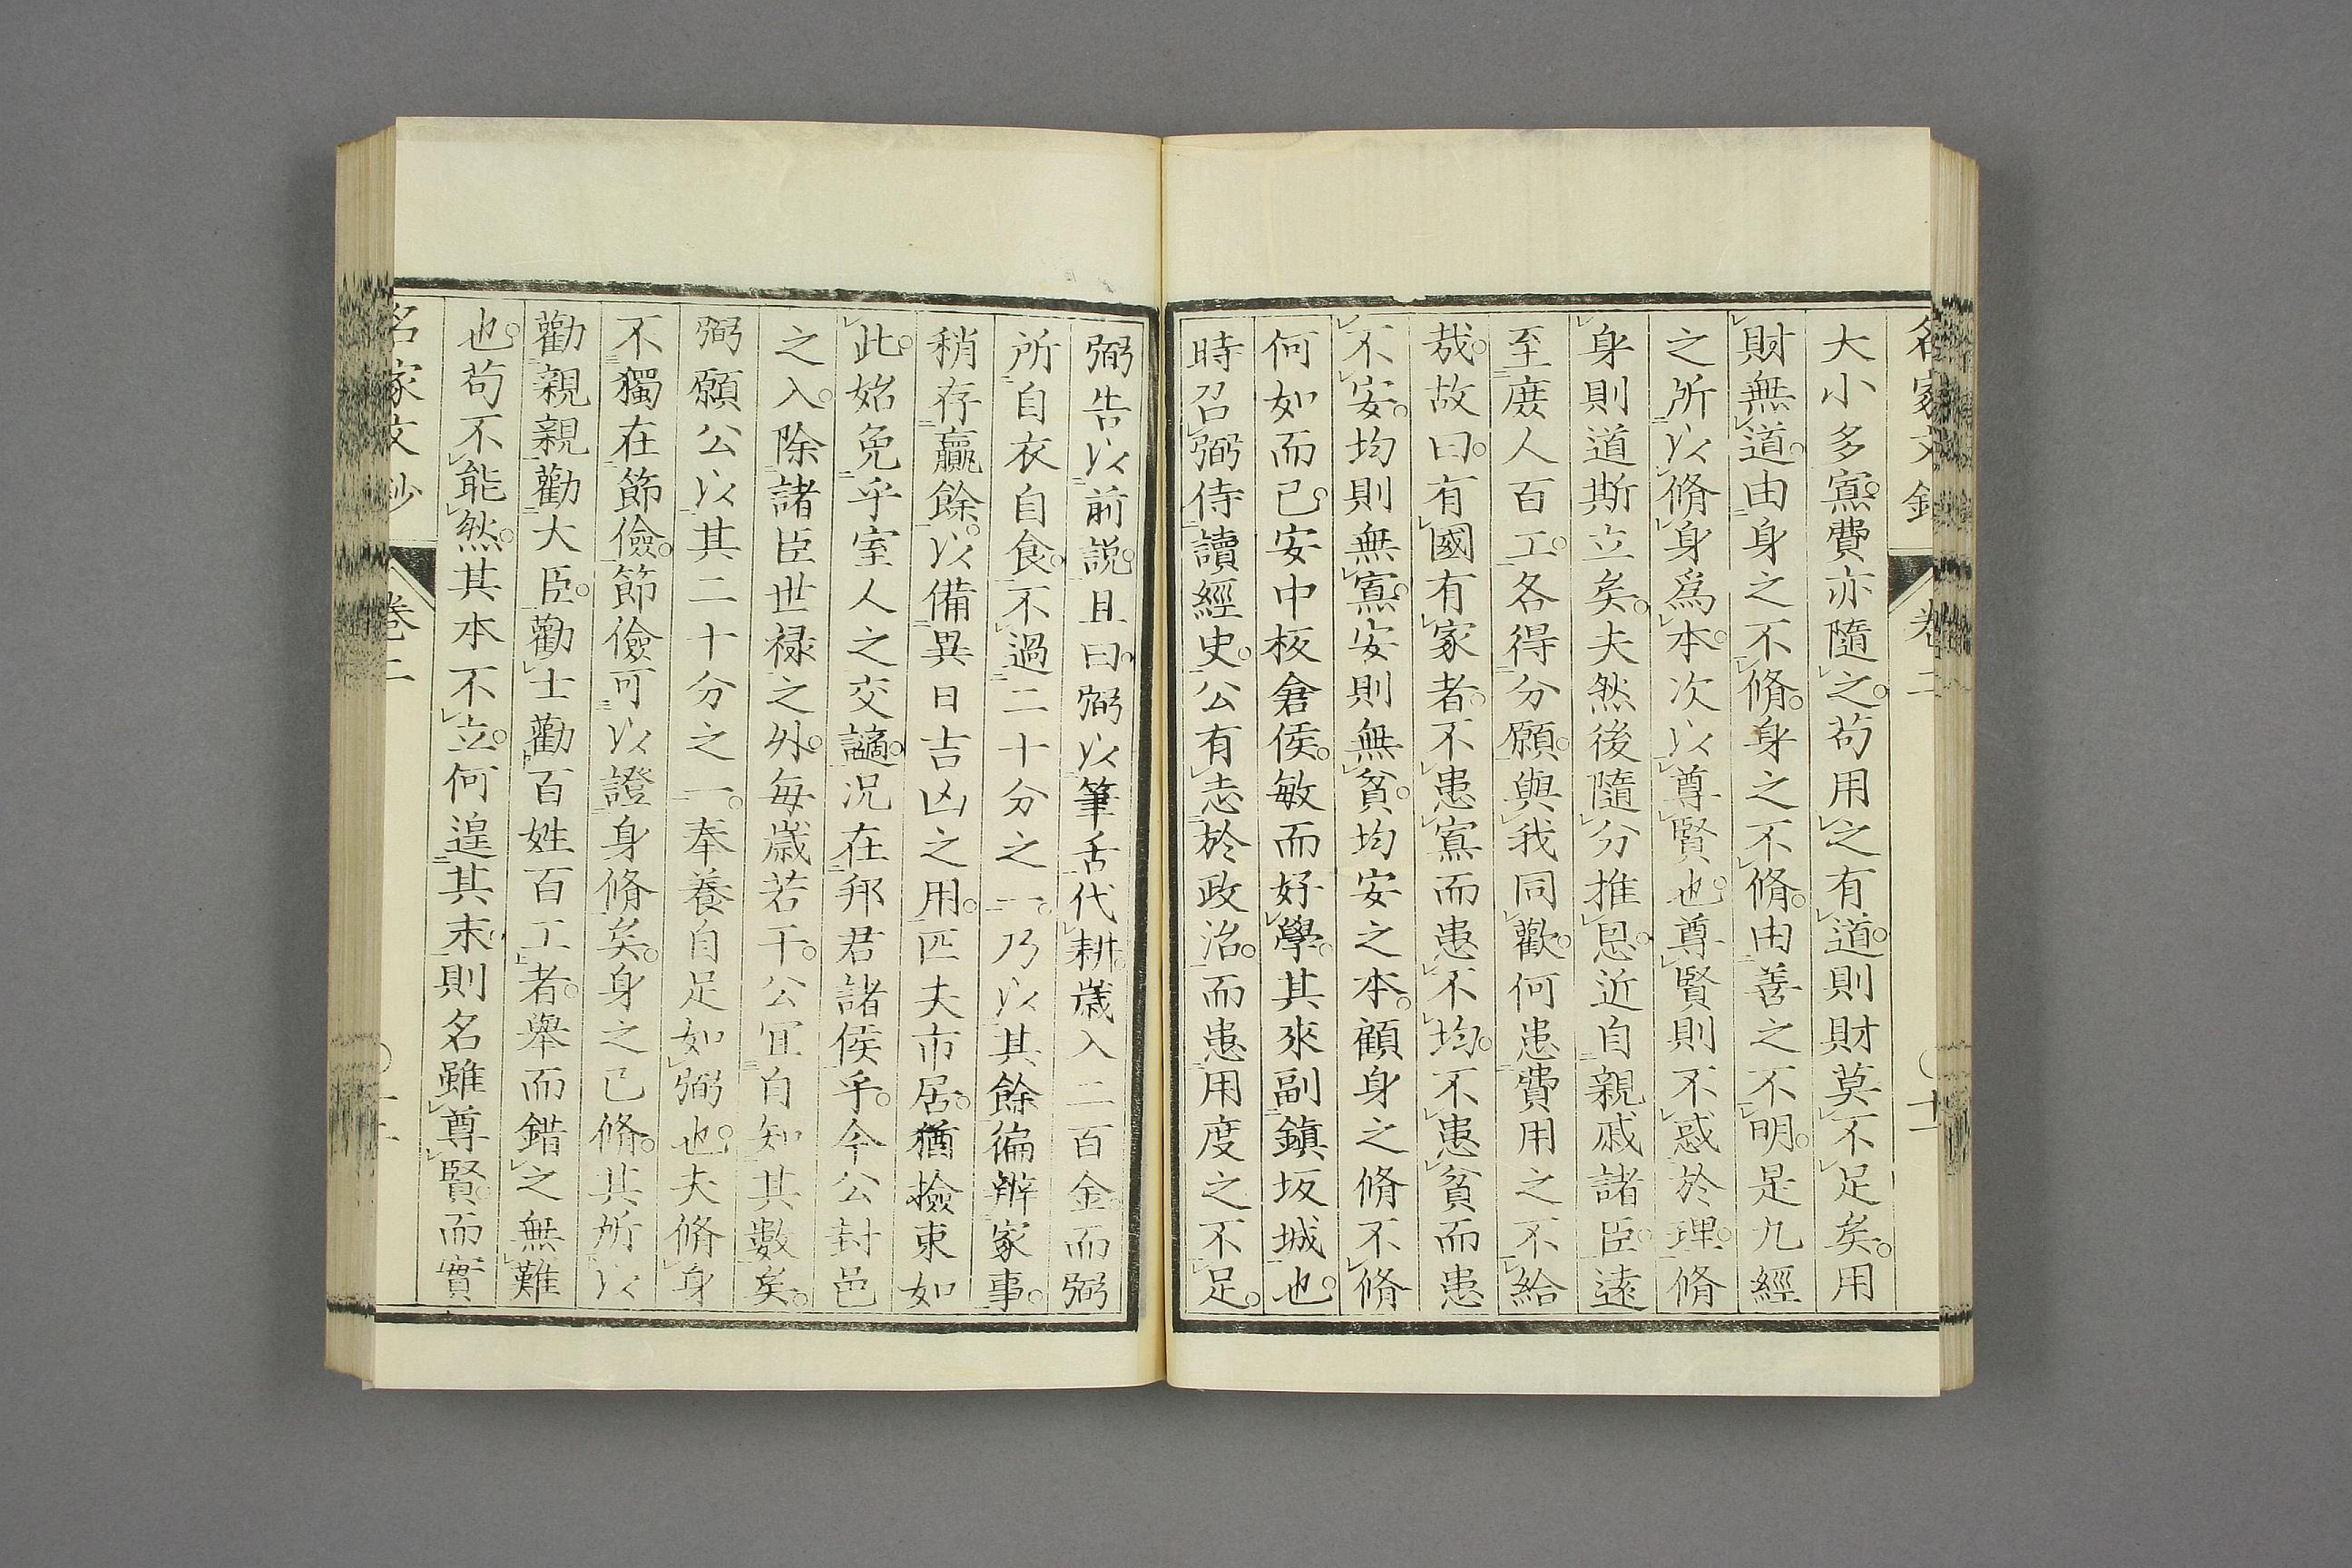 大小多寡費亦隨之。苟用之有道。則財莫不足矣。用
財無道。由身之不脩。身之不脩。由善之不明。是九經
之所以脩身爲本。次以尊賢也。尊賢則不惑於理。脩
身則道斯立矣。夫然後隨分推恩。近自親戚諸臣。遠
至庶人百工。各得分願。與我同歡。何患費用之不給
哉。故曰。有國有家者。不患寡而患不均。不患貧而患
不安。均則無寡。安則無貧。均安之本。顧身之脩不脩
何如而已。安中板倉侯。敏而好學。其來副鎭坂城也。
時召弼侍讀經史。公有志於政治。而患用度之不足。
弼告以前説。且曰。弼以筆舌代耕。歳入二百金。而弼
所自衣自食。不過二十分之一。乃以其餘徧辨家事。
稍存贏餘。以備異日吉凶之用。匹夫市居。猶撿束如
此。始免乎室人之交讁。況在邦君諸侯乎。今公封邑
之入。除諸臣世禄之外。毎歳若干。公宜自知其數矣。
弼願公以其二十分之一。奉養自足如弼也。夫脩身
不獨在節儉。節儉可以證身脩矣。身之已脩。其所以
勸親親勸大臣。勸士勸百姓百工者。舉而錯之無難
也。苟不能然。其本不立。何遑其末。則名雖尊賢。而實
名家文鈔
卷二